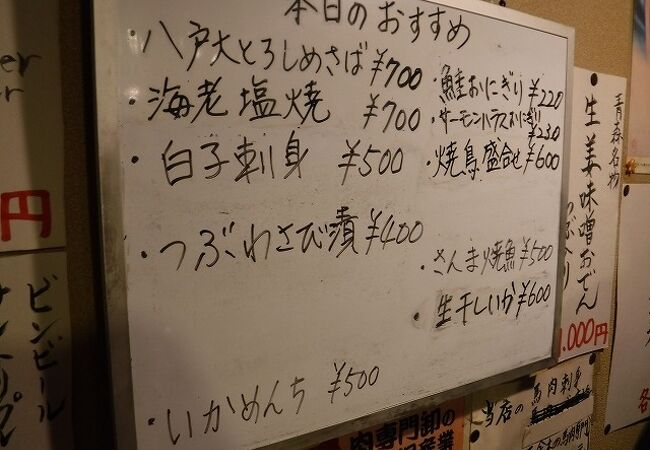 本日のおすすめ
・八戸大とろしめさば ¥700
・海老塩焼 ¥700
・白子刺身 ¥500
・つぶわさび漬 ¥400
・いかめんち ¥500
・鮭おにぎり ¥220
・サーモンハラスおにぎり
¥230
・焼鳥盛合せ ¥600
・さんま焼魚 ¥500
・生干しいか ¥600
青森名物
生姜味噌おでん
つぶ入り
1.000円
円
ビンビール
肉専門卸の
当店の
馬肉刺身